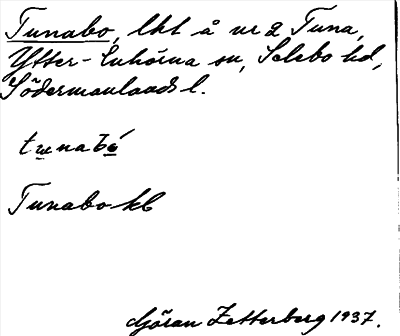 Tunabo, lht å nr 2 Tuna,
Ytter-Enhörna sn, Selebo hd,
Södermanlands l.
tunabó
Tunabo kl
Göran Zetterberg 1937.